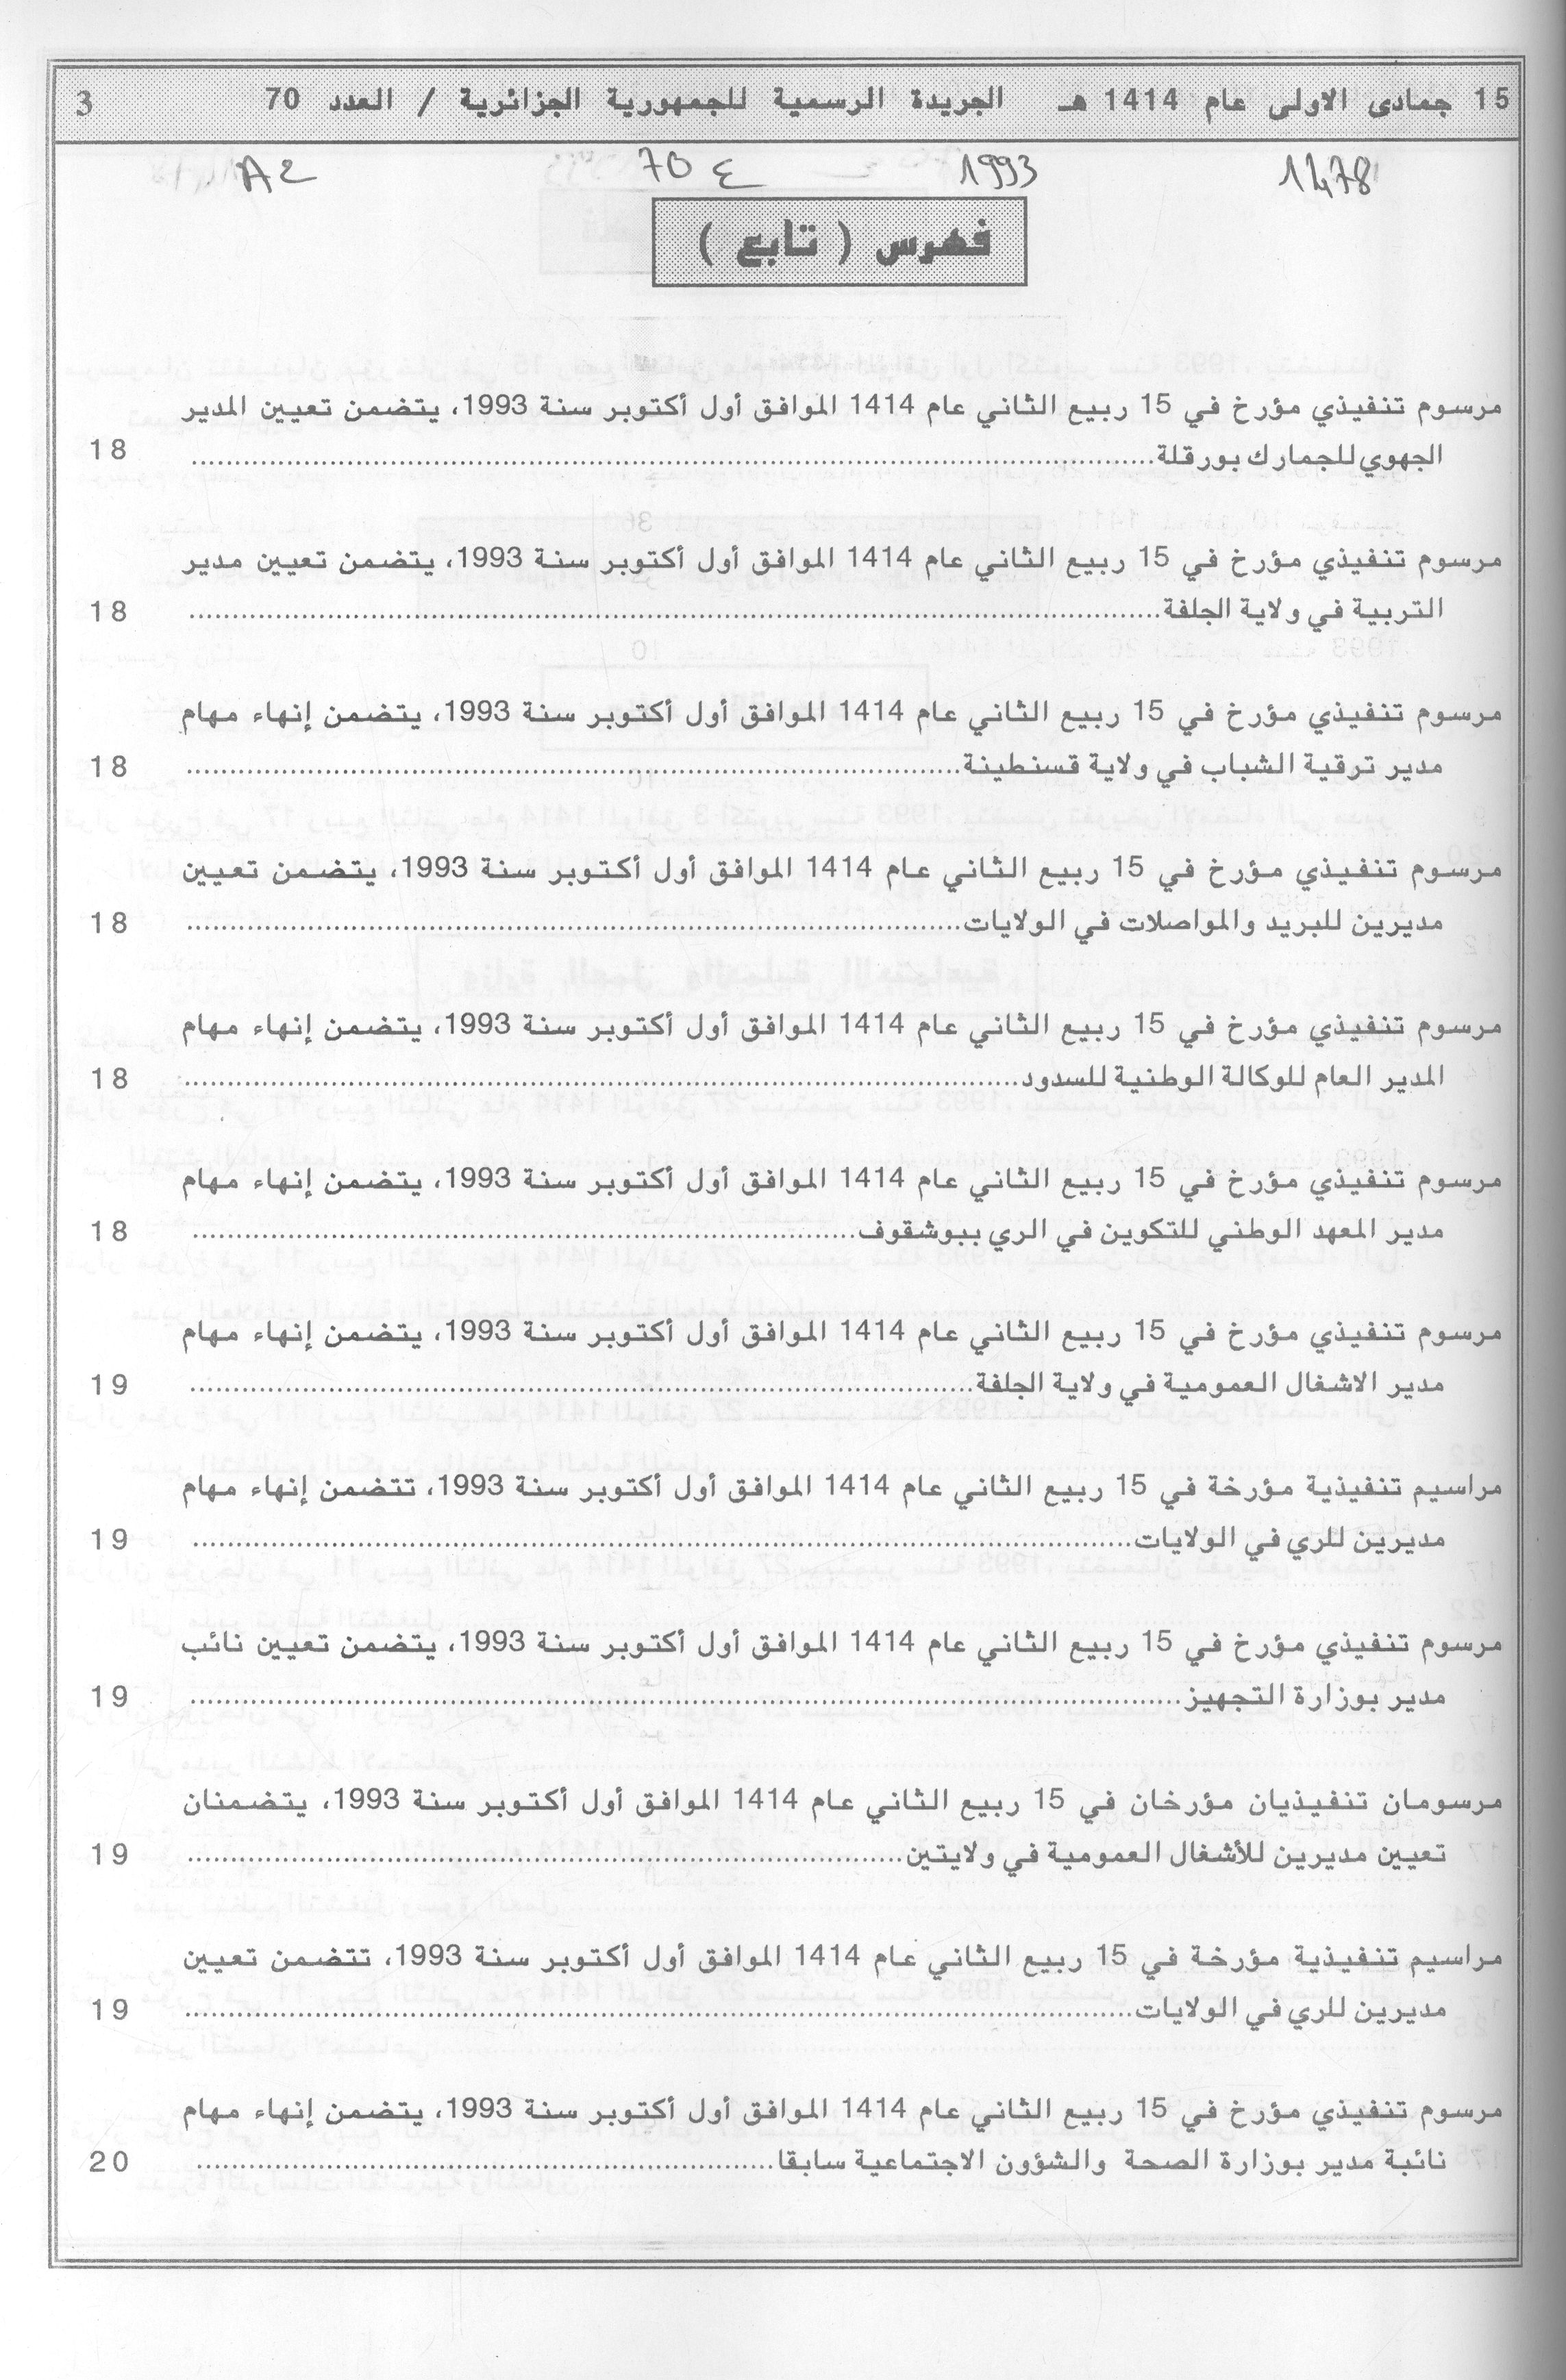 15 جمادى الاولى عام 1414 هـ الجريدة الرسمية للجمهورية الجزائرية / العدد 70 3
1478 1993 ع 70 A2
فهرس ( تابع )
مرسوم تنفيذي مؤرخ في 15 ربيع الثاني عام 1414 الموافق أول أكتوبر سنة 1993، يتضمن تعيين المدير
الجهوي للجمارك بورقلة.......................................................................................... 18
مرسوم تنفيذي مؤرخ في 15 ربيع الثاني عام 1414 الموافق أول أكتوبر سنة 1993، يتضمن تعيين مدير
التربية في ولاية الجلفة.......................................................................................... 18
مرسوم تنفيذي مؤرخ في 15 ربيع الثاني عام 1414 الموافق أول أكتوبر سنة 1993، يتضمن إنهاء مهام
مدير ترقية الشباب في ولاية قسنطينة........................................................................ 18
مرسوم تنفيذي مؤرخ في 15 ربيع الثاني عام 1414 الموافق أول أكتوبر سنة 1993، يتضمن تعيين
مديرين للبريد والمواصلات في الولايات........................................................................ 18
مرسوم تنفيذي مؤرخ في 15 ربيع الثاني عام 1414 الموافق أول أكتوبر سنة 1993، يتضمن إنهاء مهام
المدير العام للوكالة الوطنية للسدود............................................................................. 18
مرسوم تنفيذي مؤرخ في 15 ربيع الثاني عام 1414 الموافق أول أكتوبر سنة 1993، يتضمن إنهاء مهام
مدير المعهد الوطني للتكوين في الري ببوشقوف.............................................................. 18
مرسوم تنفيذي مؤرخ في 15 ربيع الثاني عام 1414 الموافق أول أكتوبر سنة 1993، يتضمن إنهاء مهام
مدير الاشغال العمومية في ولاية الجلفة......................................................................... 19
مراسيم تنفيذية مؤرخة في 15 ربيع الثاني عام 1414 الموافق أول أكتوبر سنة 1993، تتضمن إنهاء مهام
مديرين للري في الولايات....................................................................................... 19
مرسوم تنفيذي مؤرخ في 15 ربيع الثاني عام 1414 الموافق أول أكتوبر سنة 1993، يتضمن تعيين نائب
مدير بوزارة التجهيز............................................................................................ 19
مرسومان تنفيذيان مؤرخان في 15 ربيع الثاني عام 1414 الموافق أول أكتوبر سنة 1993، يتضمنان
تعيين مديرين للأشغال العمومية في ولايتين................................................................... 19
مراسيم تنفيذية مؤرخة في 15 ربيع الثاني عام 1414 الموافق أول أكتوبر سنة 1993، تتضمن تعيين
مديرين للري في الولايات....................................................................................... 19
مرسوم تنفيذي مؤرخ في 15 ربيع الثاني عام 1414 الموافق أول أكتوبر سنة 1993، يتضمن إنهاء مهام
نائبة مدير بوزارة الصحة والشؤون الاجتماعية سابقا...................................................... 20